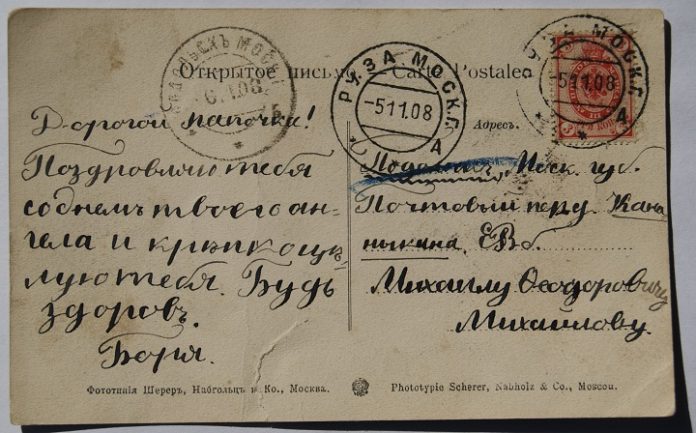 Открытое письмо. — Carte Postale.
ПОДОЛЬСКЪ МОСК.
6.11.08
РУЗА МОСК.Г.
-51108
А
РУЗА МОСК.Г.
-51108
А
Дорогой папочка!
Поздровляю тебя
со днемъ твоего ан-
гела и крѣпко цѣ-
лую тебя. Будь
здоровъ.
Боря.
Адресъ.
Подольскъ, Моск. губ.
Почтовый пер. у Кана-
ныкина. ЕВб.
Михаилу Ѳеодоровичу
Михайлову.
Фототипія Шереръ, Набгольцъ и Ко., Москва.
Phototypie Scherer, Nabholz & Co., Moscou.